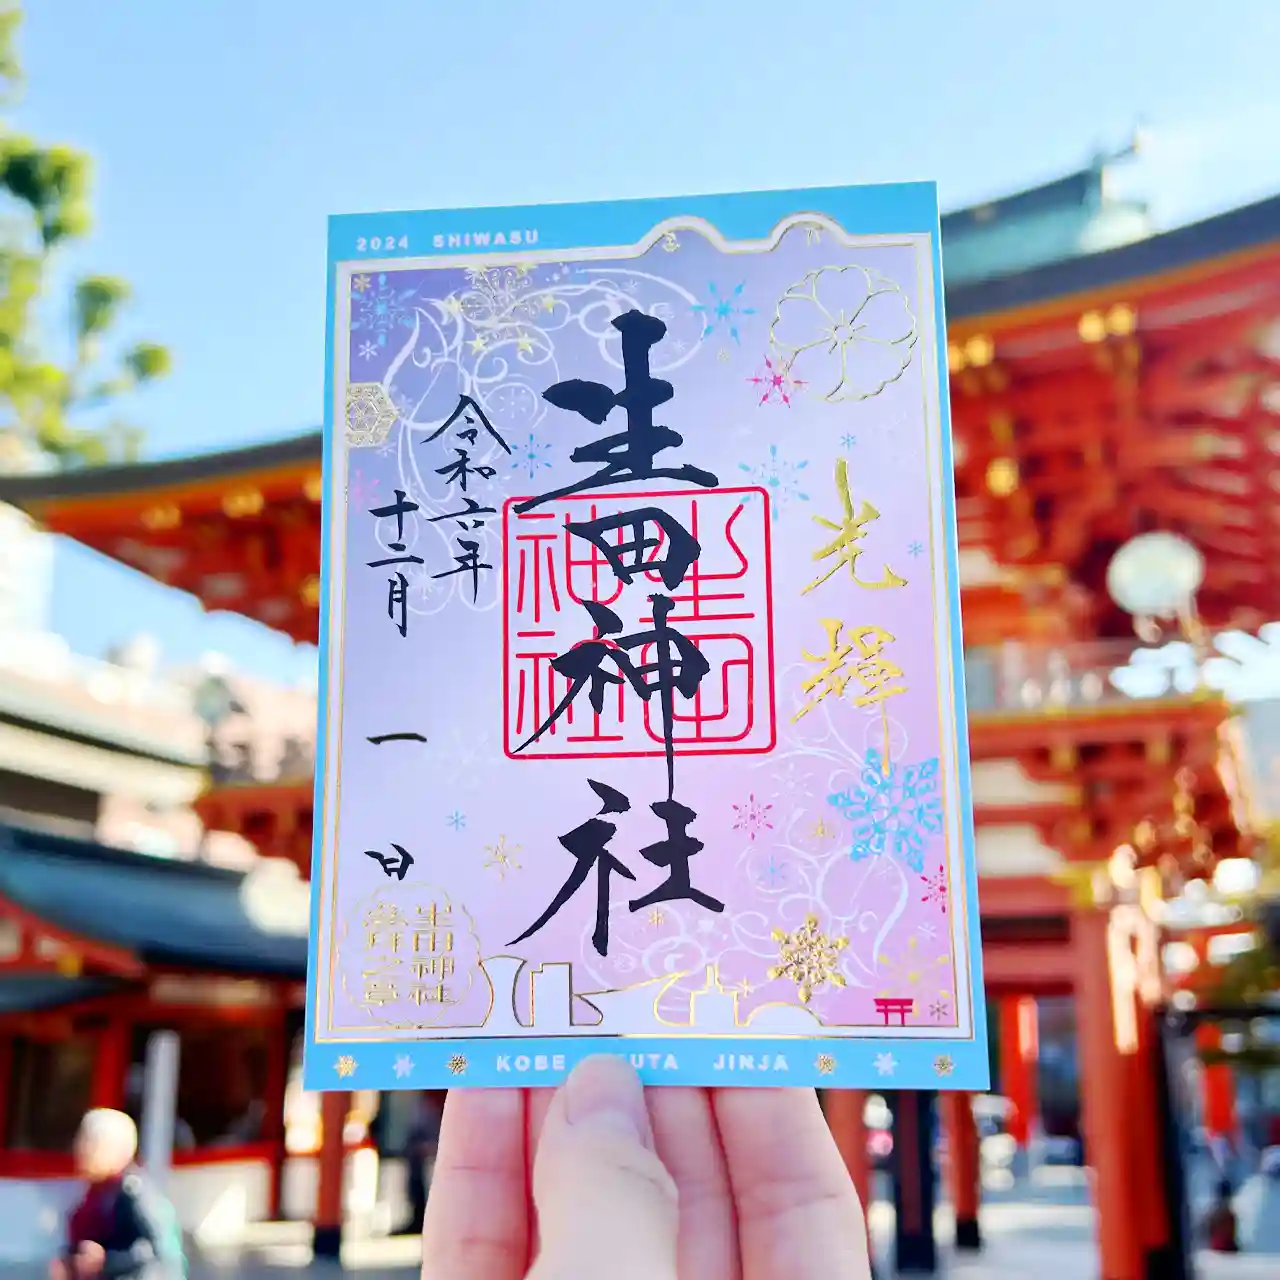 2024 SHIWASU
光輝
生田神社
生田
神社
令和六年
十二月
一
日
生田神社
KOBE UTA JINJA